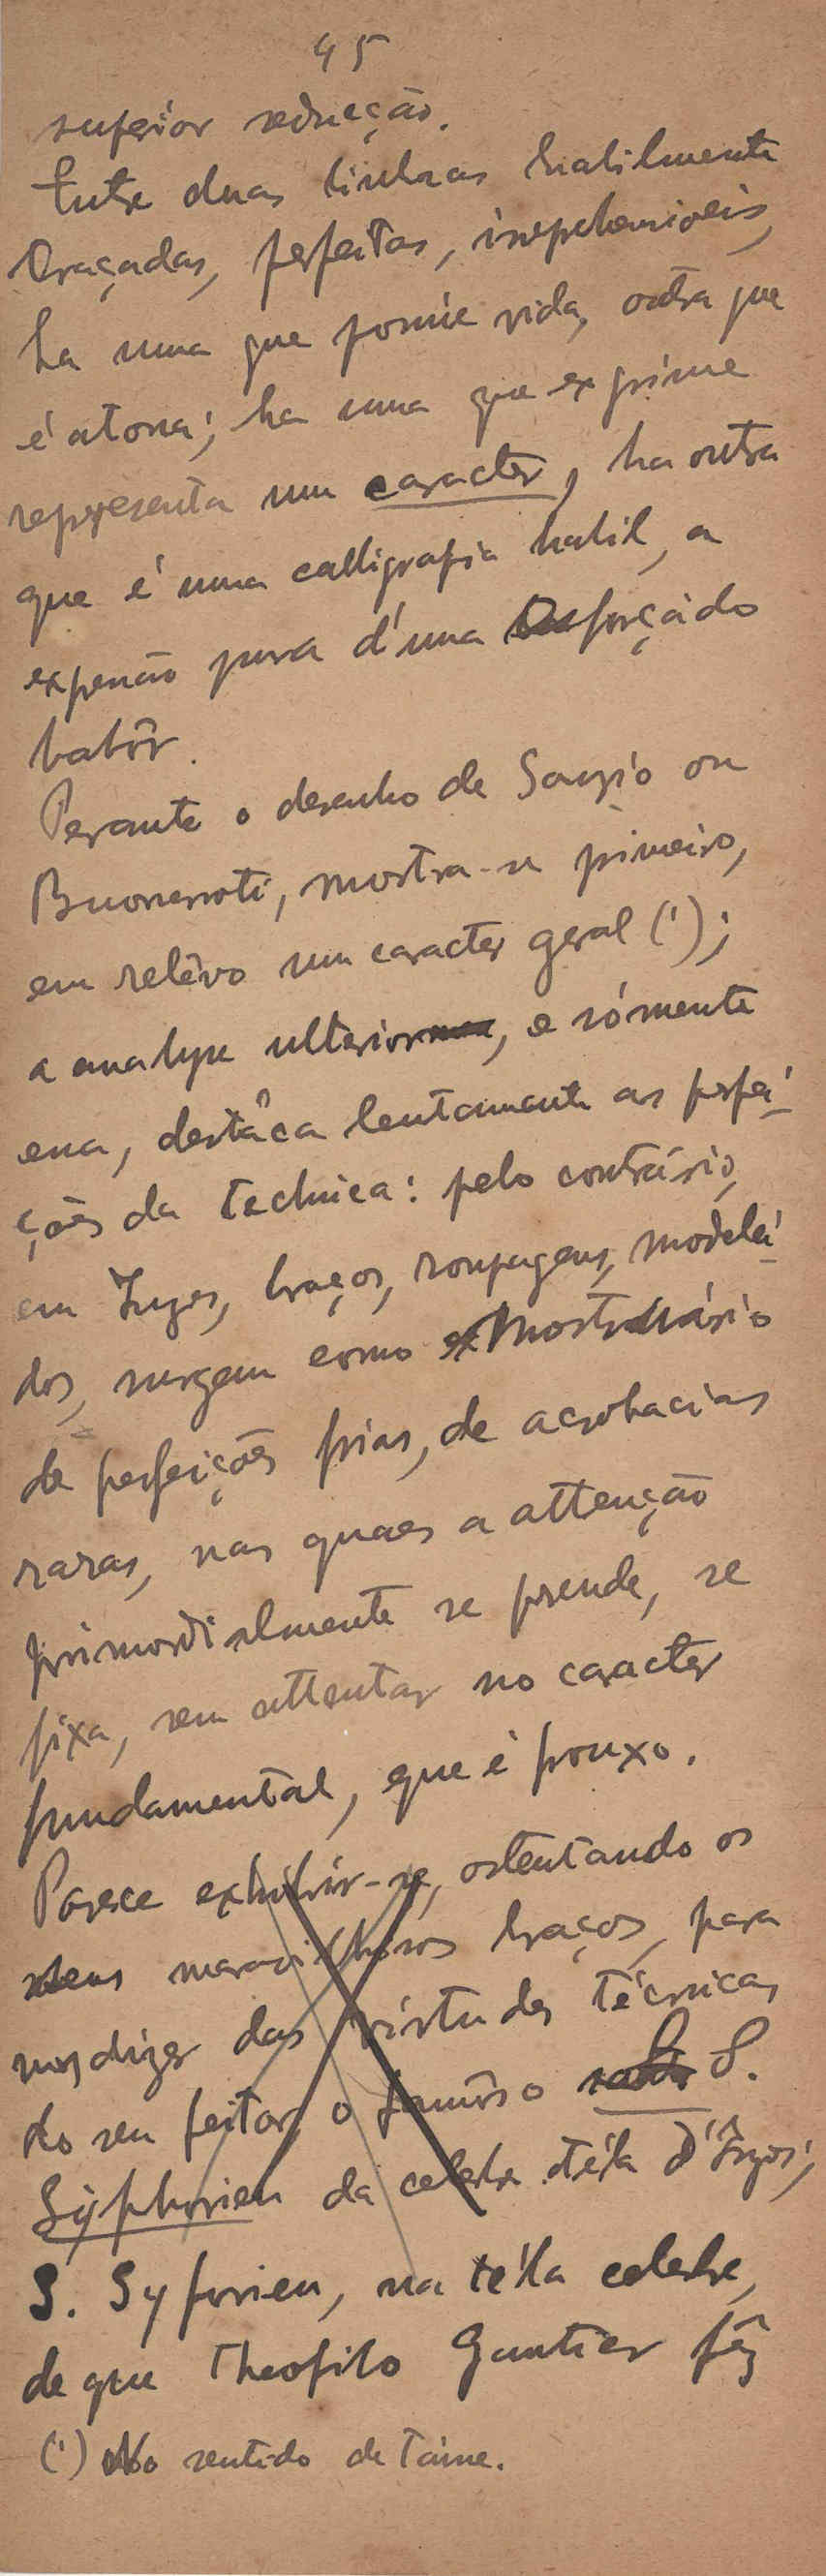 45
superior seducção.
Entre duas linhas habilmente
traçadas, perfeitas, irreprehensiveis,
ha uma que possúe vida, outra que
é atona; ha uma que exprime
representa um caracter, ha outra
que é uma calligrafia habil, a
expressão pura d'uma esforçádo
labôr.
Perante o desenho de Sanzio ou
Buonarroti, mostra-se primeiro,
em relêvo um caracter geral (1);
a analyse ulterior, e sómente
essa, destáca lentamente as perfei-
ções da technica: pelo contrário,
em Ingres, braços, roupagens, modela-
dos, surgem como mostruário
de perfeições frias, de acrobacias
raras, nas quaes a attenção
primordialmente se prende, se
fixa, sem attentar no caracter
fundamental, que é frouxo.
Parece exhibir-se, ostentando os
seus maravilhosos braços, para
nos dizer das virtudes técnicas
do seu feitor, o famôso S.
Syphorien da celebre téla d'Ingres;
S. Syforien, na téla celebre,
de que Theofilo Gautier fêz
(1) No sentido de Taine.